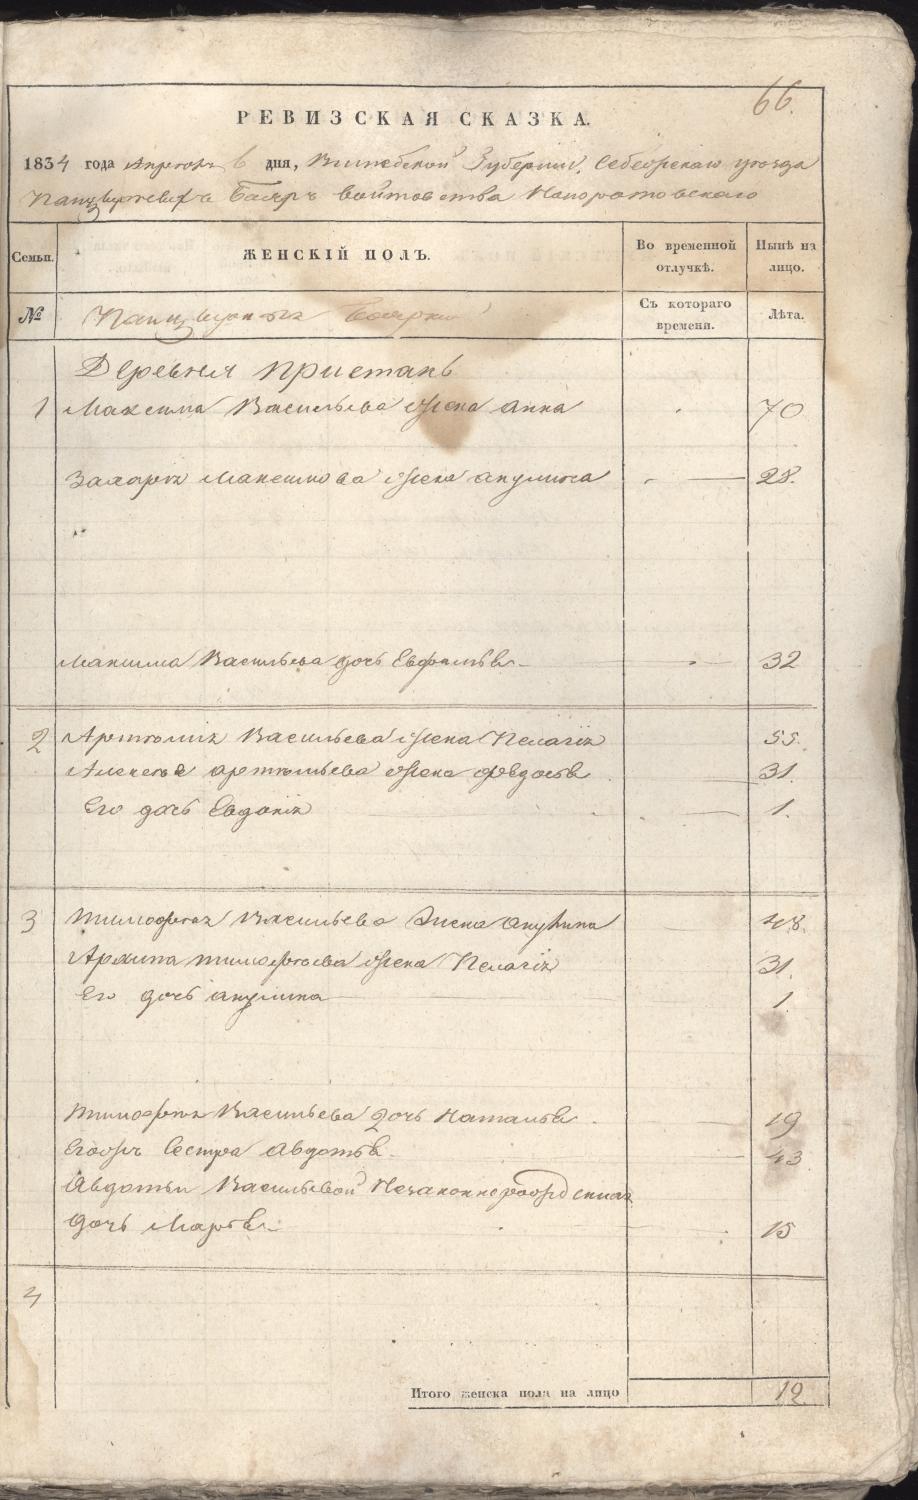 66.
РЕВИЗСКАЯ СКАЗКА.
1834 года Апреля 6 дня, Витебской Губернии, Себежскаго уезда
Панцырныхъ Бояръ войтовства Непоротовскаго
Семьи. ЖЕНСКІЙ ПОЛЪ. Во временной отлучкѣ. Нынѣ на лицо.
№ Панцырныя Боярки Съ котораго времени. Лѣта.
Деревня Пристань
1 Максима Васильева жена Анна 70
Захарія Максимова жена Акулина 28.
Максима Васильева дочь Евфимья 32
2 Артемія Васильева жена Пелагія 55.
Алексея Артемьева жена Федосья 31.
Его дочь Евдокія 1.
3 Тимофея Васильева Жена Акулина 48.
Архипа Тимофеева жена Пелагія 31.
Его дочь Акулина 1
Тимофея Васильева дочь Наталья 19
Егожъ Сестра Авдотья 43
Авдотьи Васильевой Незаконнорожденная
дочь Марья 15
4
Итого женска пола на лицо 12